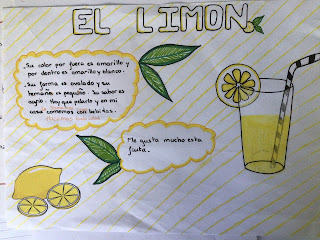 EL LIMON
- Su color por fuera es amarillo y
por dentro es amarillo y blanco.
- Su forma es ovalada y su
tamaño es pequeño. Su sabor es
agrio. Hay que pelarlo y en mi
casa comemos con bebidas.
Me gusta mucho esta
fruta.